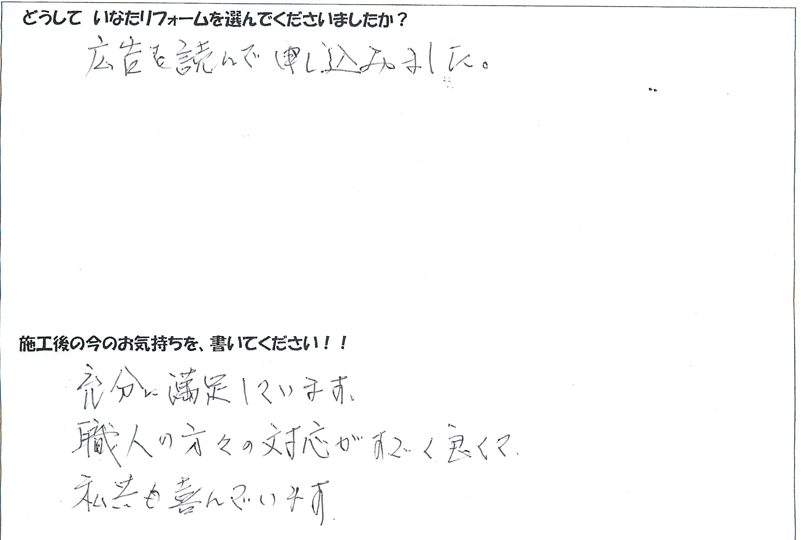 どうして いなたリフォームを選んでくださいましたか？
広告を読んで申し込みました。
施工後の今のお気持ちを、書いてください！！
充分に満足しています、
職人の方々の対応がすごく良くて
私共も喜んでいます